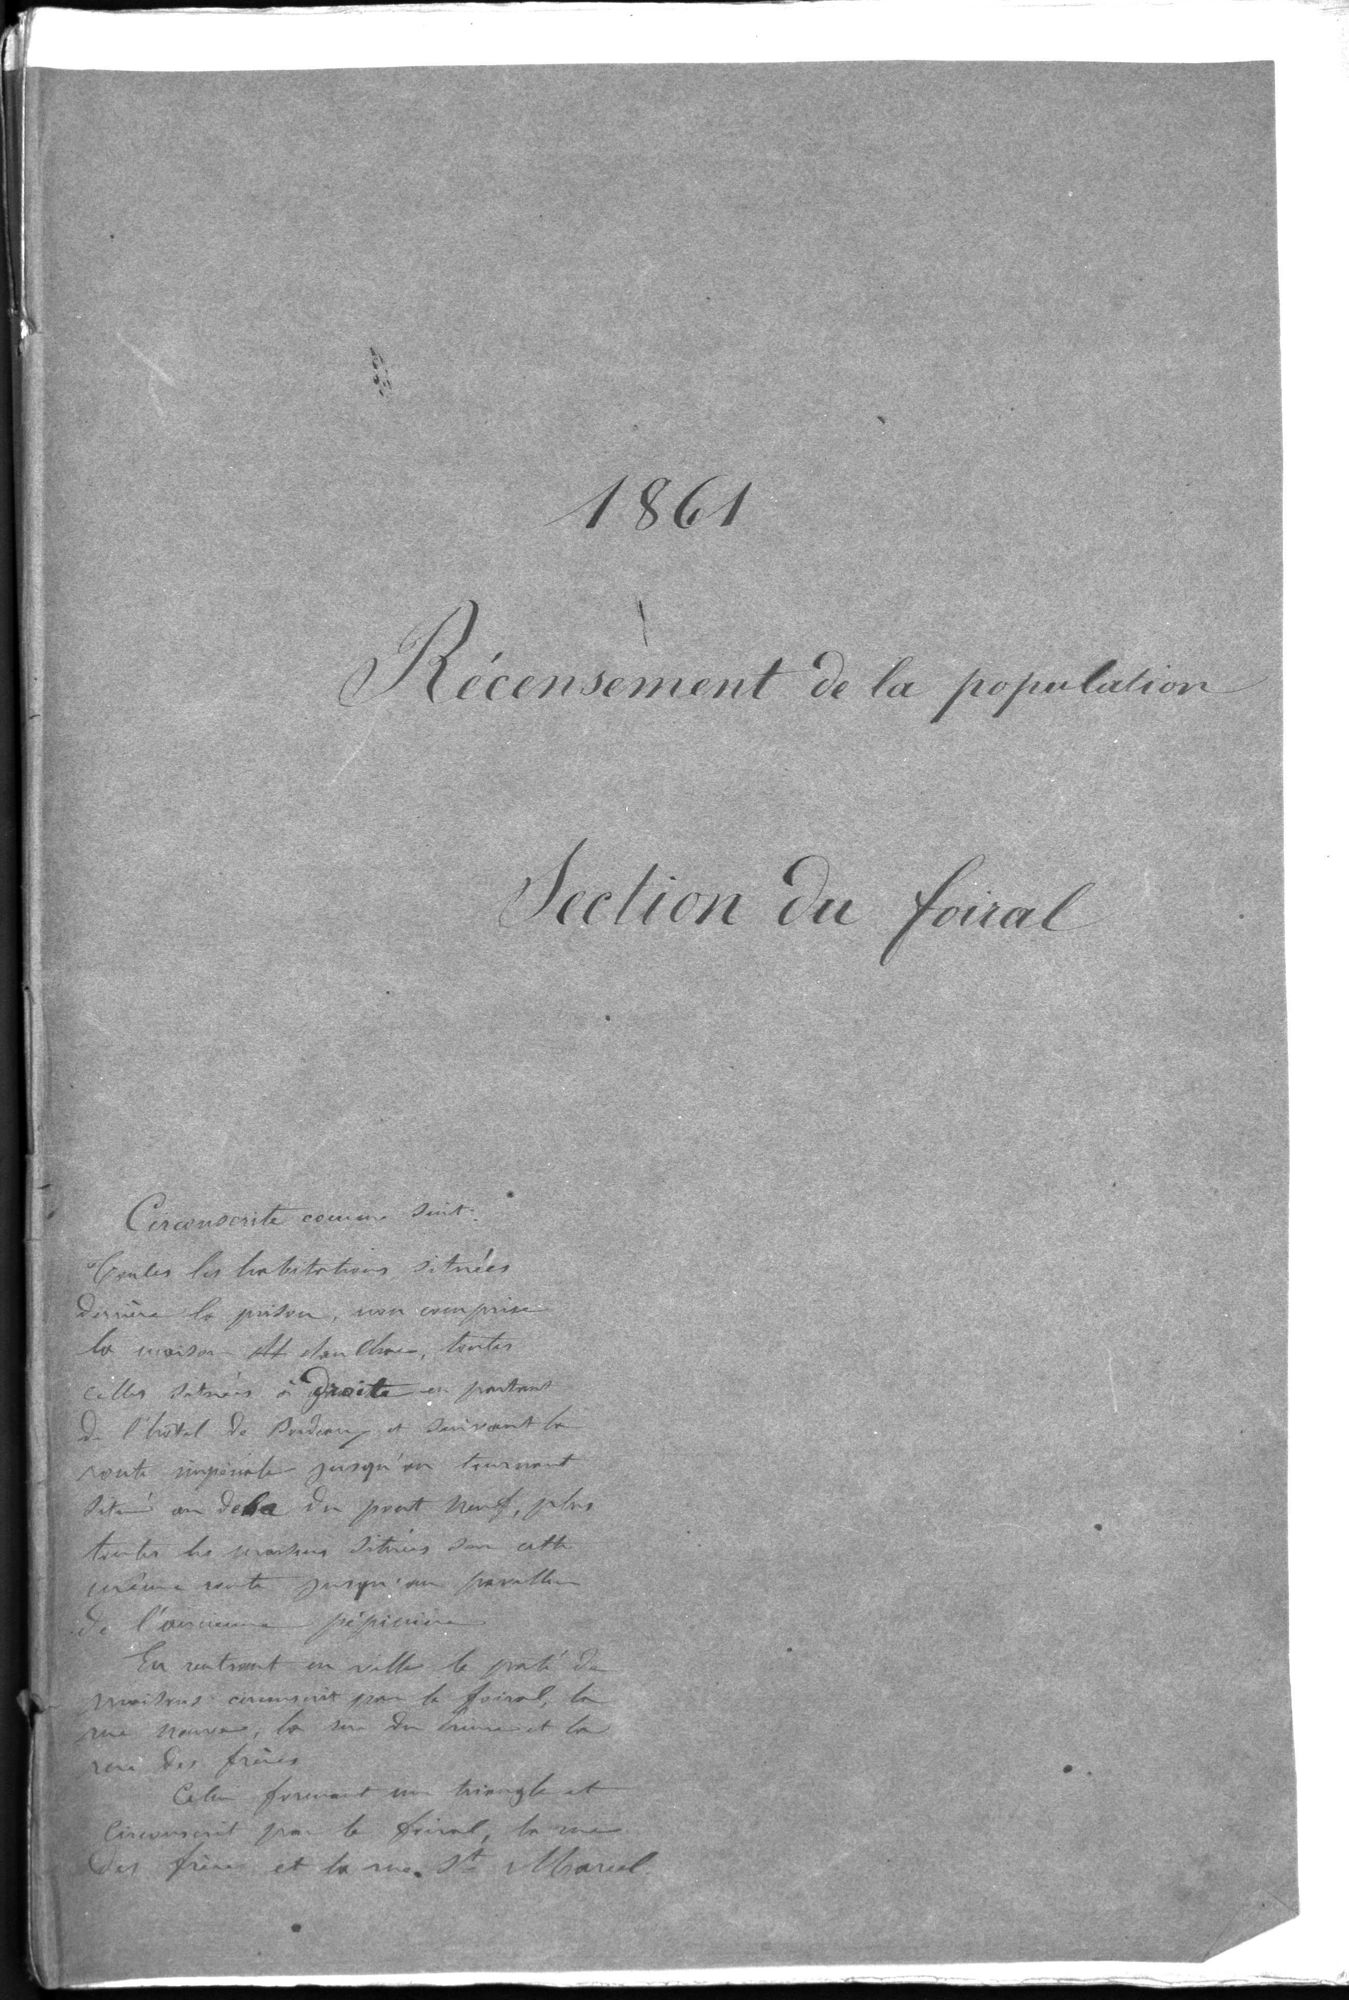 1861
Récensement de la population
Section du foiral
Circonscrite comme suit:
Toutes les habitations situées
derrière la prison, non comprise
la maison toutes
celles situées à droite en partant
de l'hôtel de Bordeaux et suivant la
route impériale jusqu'au tournant
situé au dela du pont neuf, plus
toutes les maisons situées sur cette
même route jusqu'au pavillon
de l'ancienne pépinière
En rentrant en ville le paté de
maisons circonscrit par le foiral, la
rue neuve, la rue du et la
rue des frères
Celui formant un triangle et
circonscrit par le foiral, la rue
des frères et la rue St Marcel.